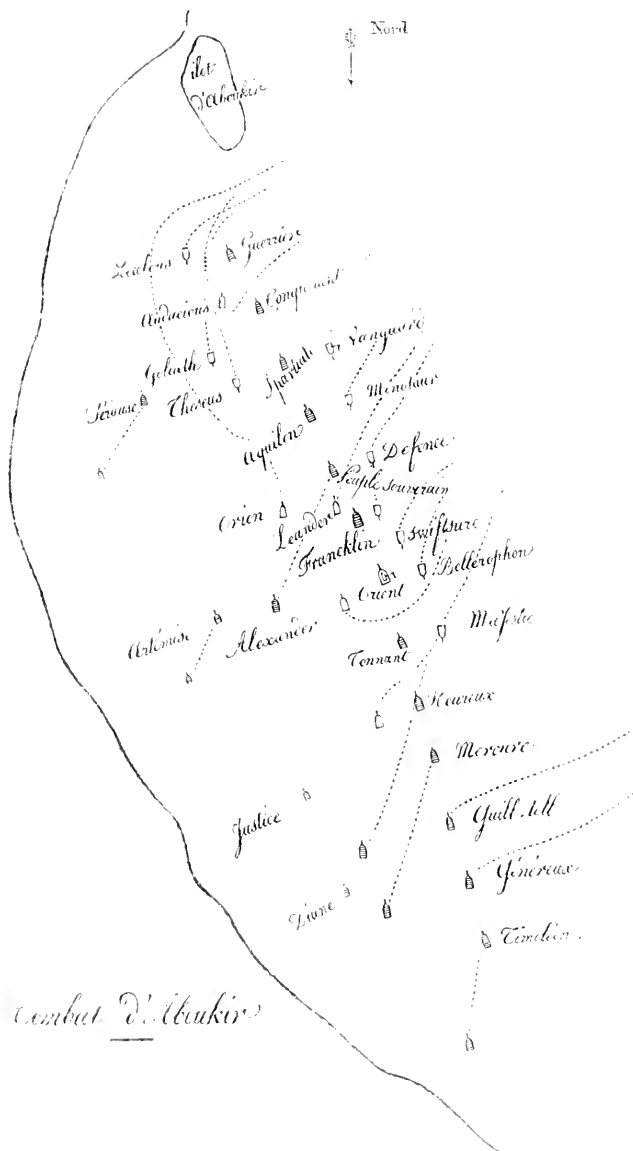 Nord
ilot
d'Aboukir
Zealous
Guerrier
Audacious
Conquerant
Goliath
Vanguard
Spartiate
Theseus
Minotaur
Aquilon
Defence
Peuple souverain
Orion
Leander
Francklin
Swiftsure
Bellérophon
Orient
Artémise
Alexander
Majestic
Tonnant
Heureux
Mercure
Justice
Guill. tell
Généreux
Diane
Timoléon
Combat d'Aboukir